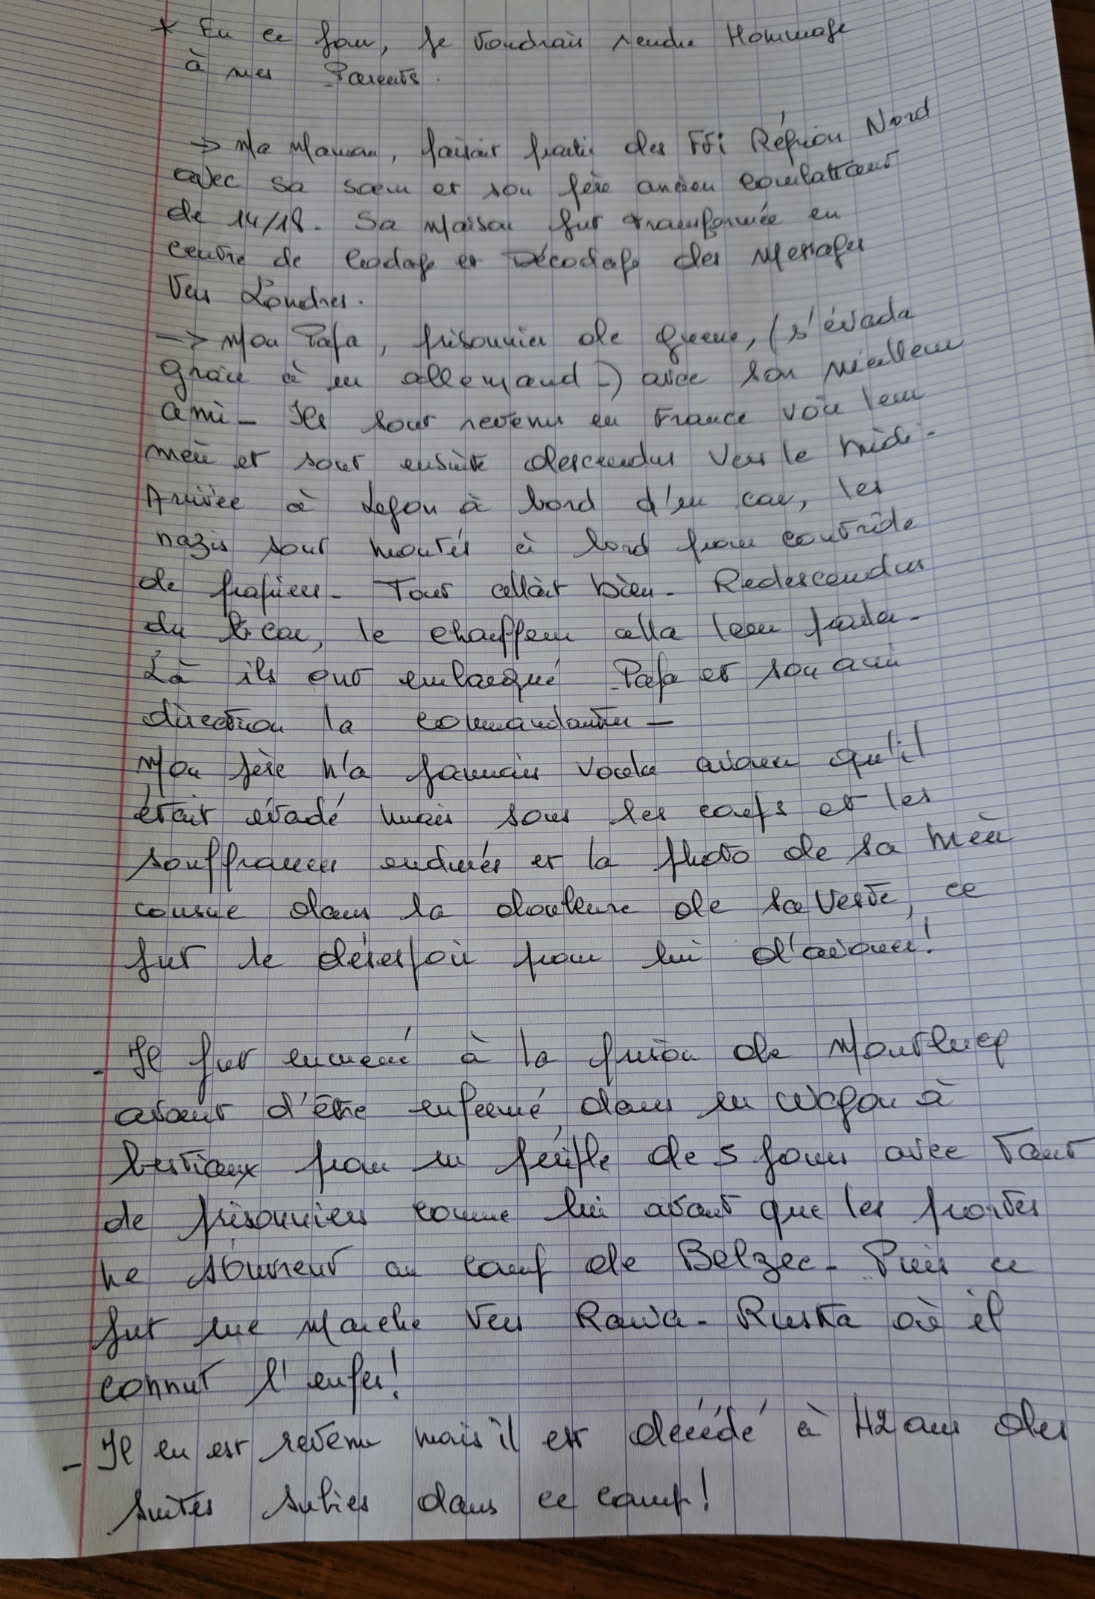 * En ce jour, je voudrais rendre Hommage
à mes Parents.
→ Ma Maman, faisait partie des FFi Région Nord
avec sa sœur et son père ancien combattant
de 14/18. Sa Maison fut transformée en
centre de Codage et Décodage des Messages
vers Londres.
→ Mon Papa, prisonnier de guerre, (s'évada
grâce à un allemand -) avec son meilleur
ami - Ils sont revenus en France voir leur
mère et sont ensuite descendus vers le midi -
Arrivée à Lyon à bord d'un car, les
nazis sont montés à bord pour contrôle
de papiers - Tout allait bien - Redescendus
du car, le chauffeur alla leur parler -
Là ils ont embarqué Papa et son ami
direction la commandantur -
Mon père n'a jamais voulu avouer qu'il
était évadé mais sous les coups et les
souffrances endurés et la photo de sa mère
cousue dans la doublure de sa veste, ce
fut le désespoir pour lui d'avouer!
- Il fut emmené à la prison de Montlucp
avant d'être enfermé, dans un wagon à
bestiaux pour un périple de 5 jours avec tant
de prisonniers comme lui avant que les portes
ne s'ouvrent au camp de Belzec - Puis ce
fut une Marche vers Rawa-Ruska où il
connut l'enfer!
- Il en est revenu mais il est décédé à 42 ans des
suites subies dans ce camp!